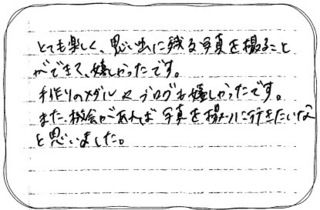 とても楽しく、思い出に残る写真を撮ること
ができて、嬉しかったです。
手作りのメダルやブログも嬉しかったです。
また、機会があれば写真を撮りに行きたいな
と思いました。